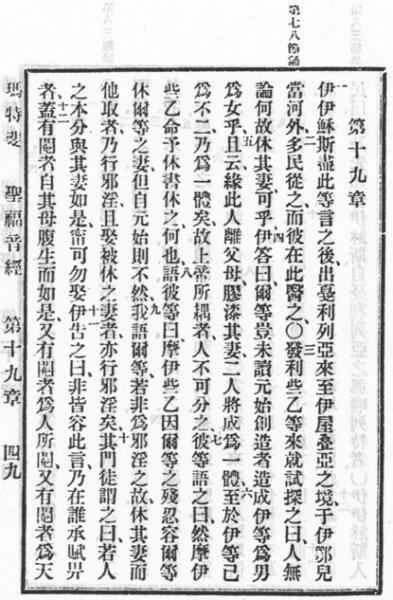 第七八節誦
第十九章
一伊伊穌斯盡此等言之後出戞利列亞來至伊屋疊亞之境于伊鄂兒
當河外二多民從之而彼在此醫之〇三發利些乙等來就試探之曰人無
論何故休其妻可乎四伊答曰爾等豈未讀元始創造者造成伊等爲男
爲女乎五且云緣此人離父母膠漆其妻二人將成爲一體六至於伊等己
爲不二乃爲一體矣故上帝所耦者人不可分之七彼等語之曰然摩伊
些乙命予休書休之何也八語彼等曰摩伊些乙因爾等之殘忍容爾等
休爾等之妻但自元始則不然九我語爾等若非爲邪淫之故休其妻而
他取者乃行邪淫且娶被休之妻者亦行邪淫矣十其門徒謂之曰若人
之本分與其妻如是甯可勿娶十一伊告之曰非皆容此言乃在誰承賦畀
者十二蓋有閹者自其母腹生而如是又有閹者爲人所閹又有閹者爲天
瑪特斐 聖福音經 第十九章 四九